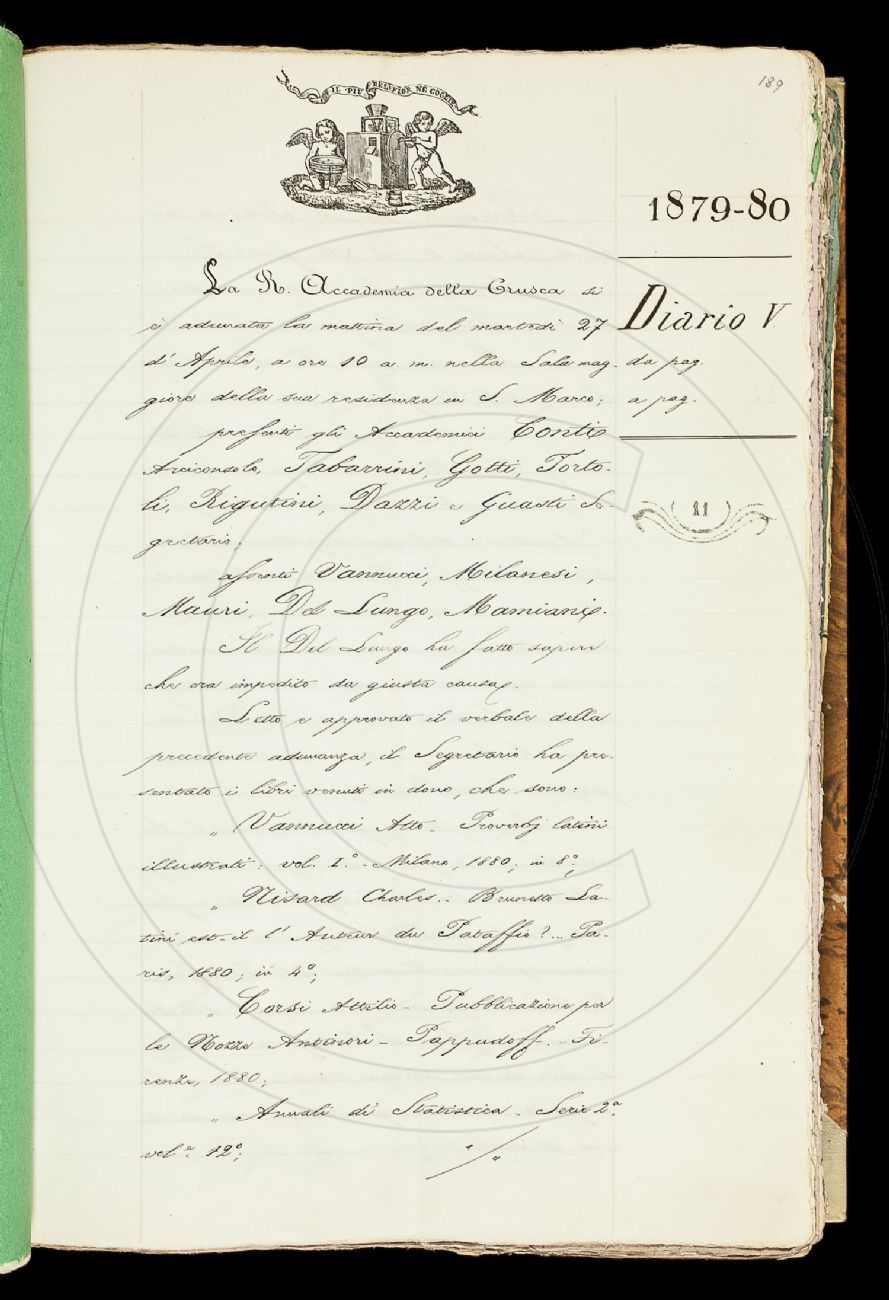 IL PIÙ BEL FIOR NE COGLIE
189
1879-80
Diario V
da pag.
a pag.
11
La R. Accademia della Crusca si
è adunata la mattina del martedì 27
d' Aprile, a ore 10 a. m. nella Sala mag-
giore della sua residenza in S. Marco;
presenti gli Accademici Conti
Arciconsolo, Tabarrini, Gotti, Torto-
li, Rigutini, Dazzi e Guasti Se-
gretario;
assenti Vannucci, Milanesi,
Mauri, Del Lungo, Mamiani.
Il Del Lungo ha fatto sapere
che era impedito da giusta causa.
Letto e approvato il verbale della
precedente adunanza, il Segretario ha pre-
sentato i libri venuti in dono, che sono:
„ Vannucci Atto - Proverbj latini
illustrati: vol. I.° - Milano, 1880; in 8°;
„ Nisard Charles.. Brunetto La-
tini est-il l' Auteur du Pataffio?... Pa-
ris, 1880; in 4°;
„ Corsi Attilio - Pubblicazione per
le Nozze Antinori - Pappudoff. - Fi-
renze, 1880;
„ Annali di Statistica - Serie 2ª
vol.e 12°;